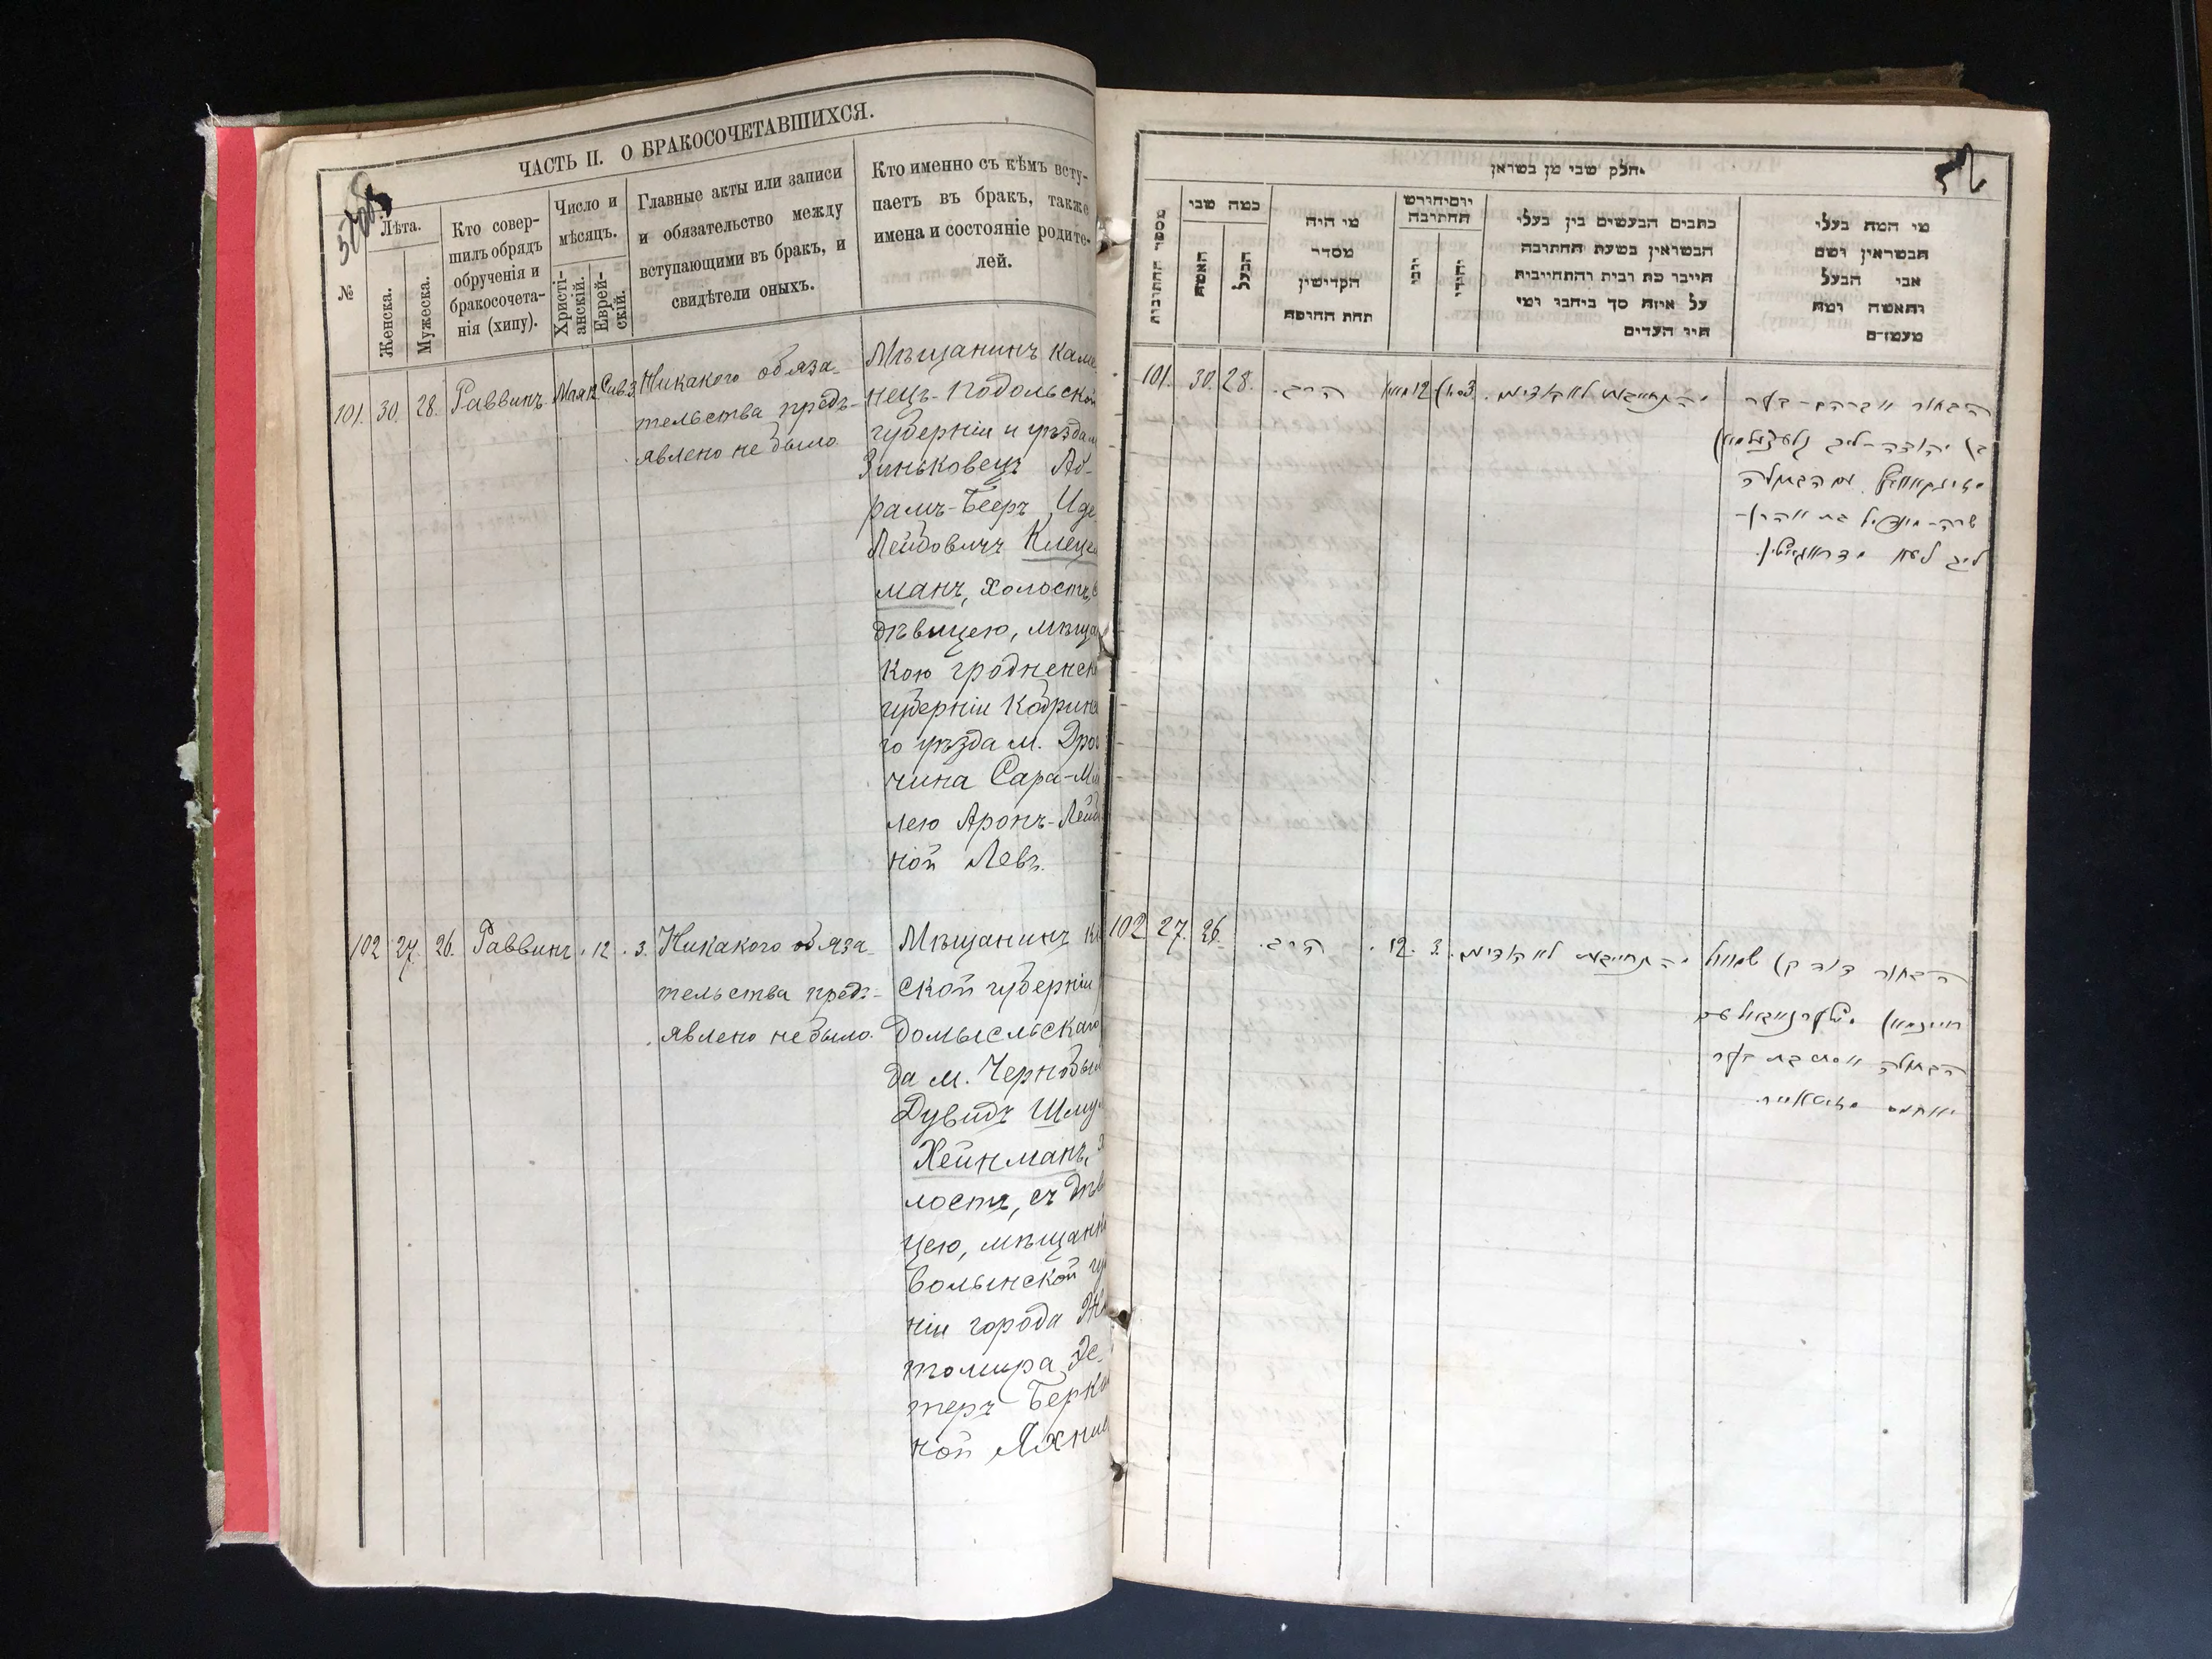 ЧАСТЬ II. О БРАКОСОЧЕТАВШИХСЯ.
№
Лѣта.
Женска.
Мужеска.
Кто совер-
шилъ обрядъ
обрученія и
бракосочета-
нія (хипу).
Число и
мѣсяцъ.
Христі-
анскій.
Еврей-
скій.
Главные акты или записи
и обязательство между
вступающими въ бракъ, и
свидѣтели оныхъ.
Кто именно съ кѣмъ всту-
паетъ въ бракъ, также
имена и состояніе родите-
лей.
101. 30. 28. Раввинъ. Мая 12 Сив. 3.
Никакого обяза-
тельства предъ-
явлено не было
Мѣщанинъ Каме
нецъ-Подольской
губерніи и уѣзда м.
Зиньковецъ Аб-
рамъ-Бееръ Иде
Лейбовичъ Клецел
манъ, холостъ, с
дѣвицею, мѣща
кою гродненск
губерніи Кобринс
го уѣзда м. Дрог
чина Сара-Ми
лею Аронъ-Лейб
ной Левъ.
102 27. 26. Раввинъ. 12. 3.
Никакого обяза-
тельства предъ-
явлено не было.
Мѣщанинъ Кі
ской губерніи
домысльскаго
да м. Чернобыл
Дувидъ Шму
Хейнманъ, х
лостъ, съ дѣв
цею, мѣщанк
волынской гу
ніи города Жи
томира Эс-
теръ Берко
ной Яхни
חלק שבי מן בשראן
מספר החתובות
כמה שבי
האשה
הבעל
מי היה
מסדר
הקדישין
תחת החופה
יום יחודש
החתובה
כתבים הבעשים בין בעלי
הבשראין בשעת החתובה
חייבו כת רבית והתחייבות
על איזה סך ביחבו ומי
חיו העדים
מי המה בעלי
הבשראין ושם
אבי הבעל
והאשה ומה
מעמדם
101. 30. 28. הרב. 12 3
התחייבות לא הודיעו.
הבחור אברהם-בער
בן יהודה-ליב
שרה-מינדיל בת אהרן-
ליב לעוו
102. 27. 26. הרב. 12. 3.
התחייבות לא הודיעו.
הבחור דוד בן שמואל
היינמאן
הבתולה אסתר בת בער